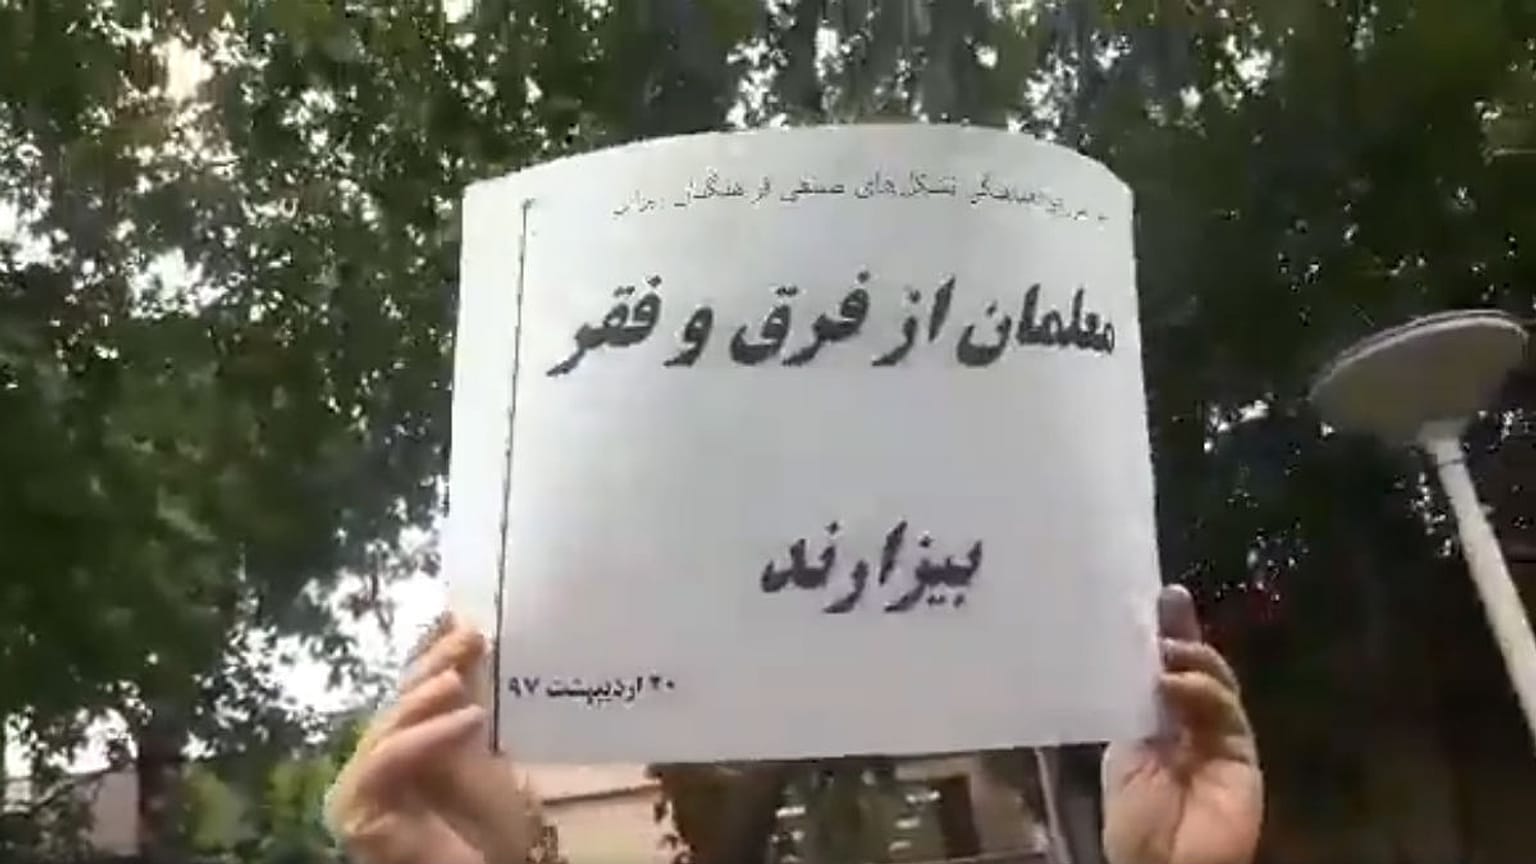 تشکل‌های صنفی فرهنگیان ایران
معلمان از فرق و فقر
بیزارند
۲۰ اردیبهشت ۹۷